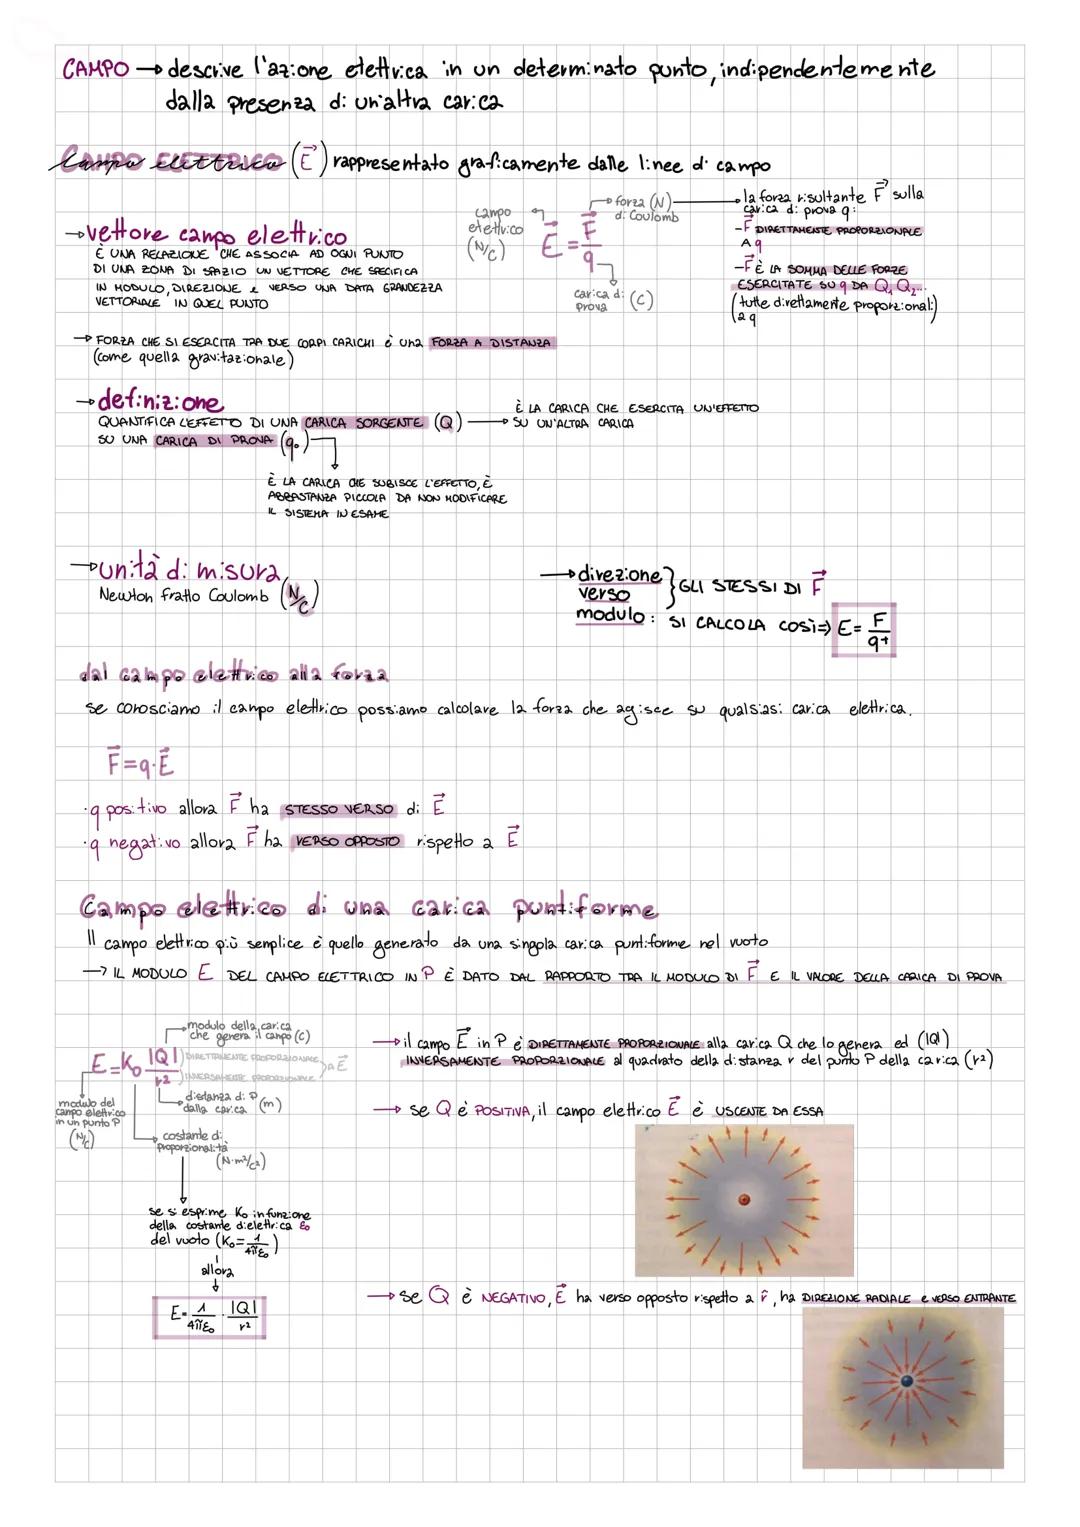 CAMPO → descrive l'azione elettrica in un determinato punto, indipendentemente
dalla presenza di un'altra carica
Campo elettrico (E⃗) rappresentato graficamente dalle linee di campo
→ vettore campo elettrico
È UNA RELAZIONE CHE ASSOCIA AD OGNI PUNTO
DI UNA ZONA DI SPAZIO UN VETTORE CHE SPECIFICA
IN MODULO, DIREZIONE e VERSO UNA DATA GRANDEZZA
VETTORIALE IN QUEL PUNTO
campo
elettrico
(N/C)
E⃗ = F⃗/q
forza (N)
di Coulomb
carica di
prova (C)
la forza risultante F⃗ sulla
carica di prova q:
-F⃗ DIRETTAMENTE PROPORZIONALE
A q
-F⃗ È LA SOMMA DELLE FORZE
ESERCITATE SU q DA Q₁ Q₂...
(tutte direttamente proporzionali)
a q
→ FORZA CHE SI ESERCITA TRA DUE CORPI CARICHI è una FORZA A DISTANZA
(come quella gravitazionale)
→ definizione
QUANTIFICA L'EFFETTO DI UNA CARICA SORGENTE (Q)
SU UNA CARICA DI PROVA (q₀)
È LA CARICA CHE ESERCITA UN'EFFETTO
SU UN'ALTRA CARICA
È LA CARICA CHE SUBISCE L'EFFETTO, È
ABBASTANZA PICCOLA DA NON MODIFICARE
IL SISTEMA IN ESAME
→ unità di misura
Newton fratto Coulomb (N/C)
→ direzione
verso
} GLI STESSI DI F⃗
modulo: SI CALCOLA COSÌ ⇒ E = F/q+
dal campo elettrico alla forza
se conosciamo il campo elettrico possiamo calcolare la forza che agisce su qualsiasi carica elettrica.
F⃗ = q·E⃗
·q positivo allora F⃗ ha STESSO VERSO di E⃗
·q negativo allora F⃗ ha VERSO OPPOSTO rispetto a E⃗
Campo elettrico di una carica puntiforme
Il campo elettrico più semplice è quello generato da una singola carica puntiforme nel vuoto
→ IL MODULO E DEL CAMPO ELETTRICO IN P È DATO DAL RAPPORTO TRA IL MODULO DI F⃗ E IL VALORE DELLA CARICA DI PROVA
modulo della carica
che genera il campo (C)
E = K₀ |Q|/r²
DIRETTAMENTE PROPORZIONALE
INVERSAMENTE PROPORZIONALE
a E⃗
modulo del
campo elettrico
in un punto P
(N/C)
distanza di P
dalla carica (m)
costante di
proporzionalità
(N·m²/C²)
se si esprime K₀ in funzione
della costante dielettrica ε₀
del vuoto (K₀ = 1/4πε₀)
allora
E = 1/4πε₀ · |Q|/r²
→ il campo E⃗ in P è DIRETTAMENTE PROPORZIONALE alla carica Q che lo genera ed (|Q|)
INVERSAMENTE PROPORZIONALE al quadrato della distanza r del punto P della carica (r²)
→ se Q è POSITIVA, il campo elettrico E⃗ è USCENTE DA ESSA
→ se Q è NEGATIVO, E⃗ ha verso opposto rispetto a r̂, ha DIREZIONE RADIALE e VERSO ENTRANTE